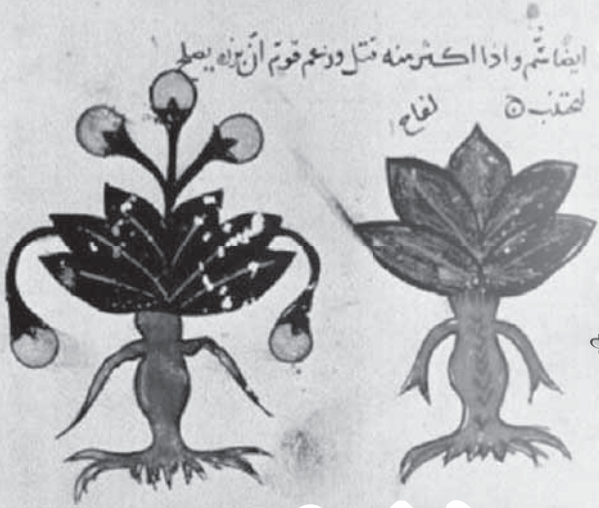 ايضا شم واذا اكثر منه قتل وزعم قوم ان بزره يصلح
لفاح